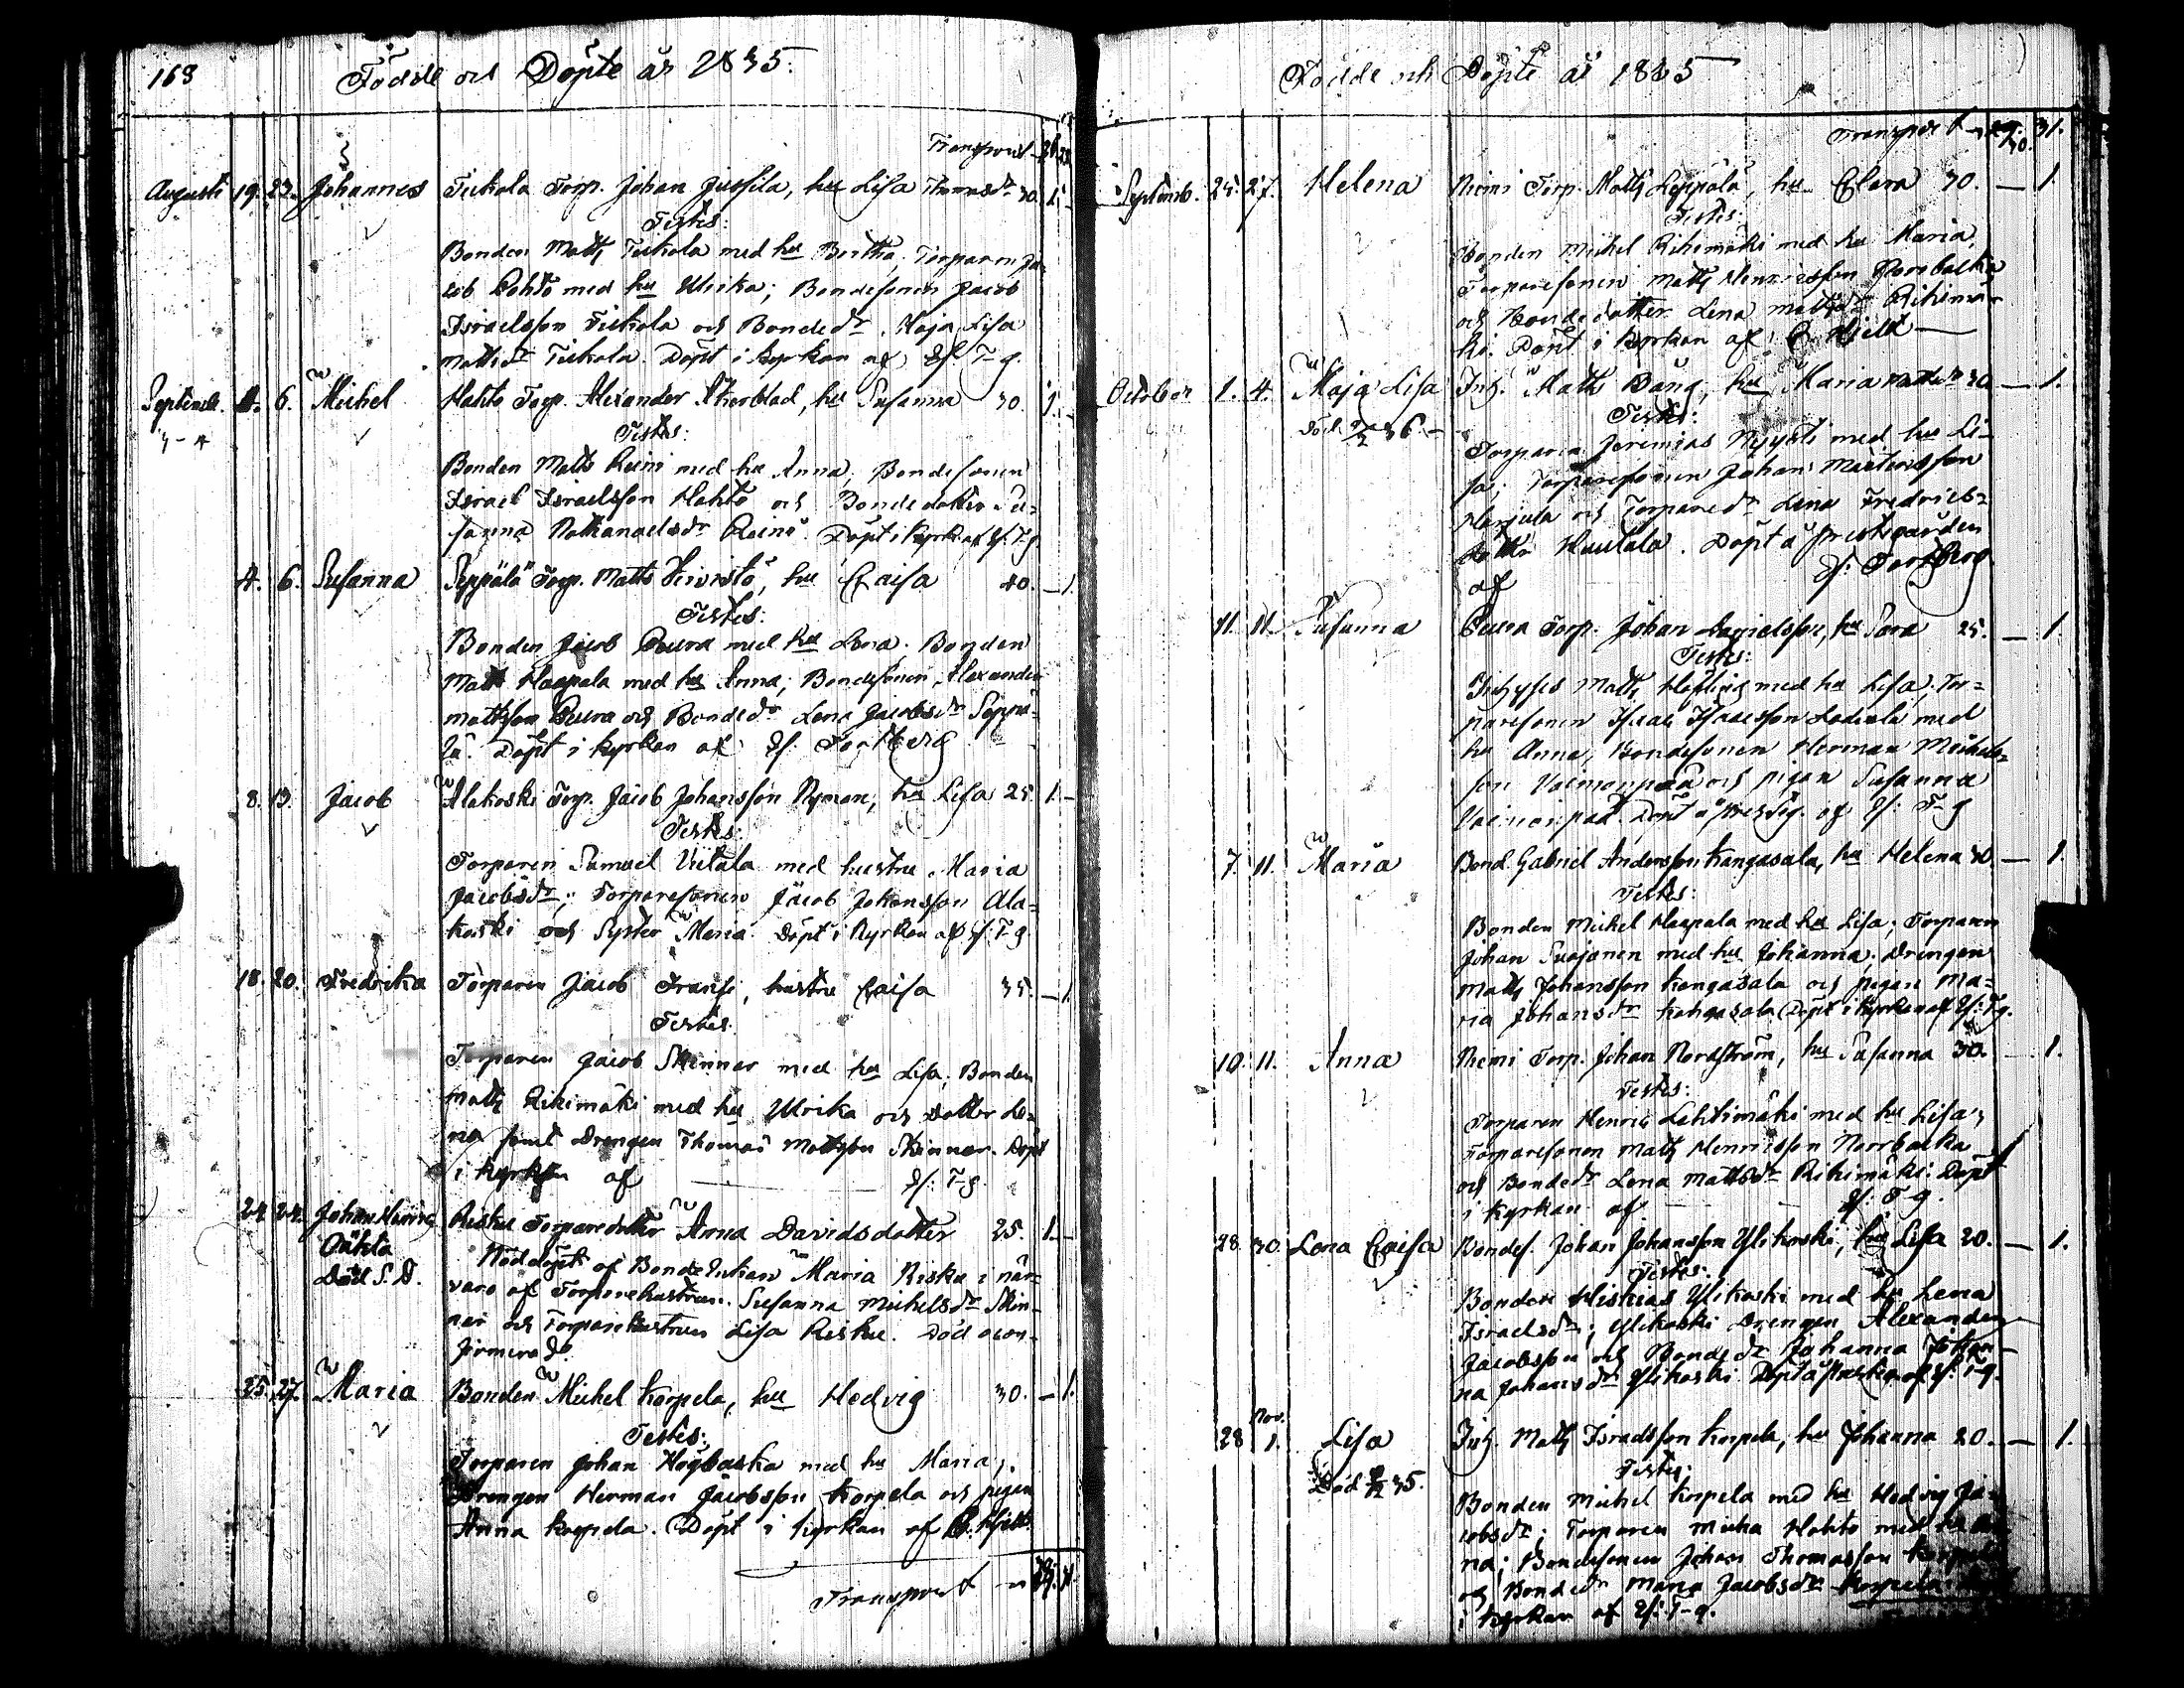 168 Födde och Döpte år 1835.
Transport
Augusti 19. 23. Johannes Tiskola Torp. Johan Jussila, hu Lisa Thomasdr 30. 1. –
Testes:
Bonden Matts Tiskola med hu Birtha, Torparen Ja-
cob Pohto med hu Ulrika; Bondesonen Jacob
Israelsson Tiskola och Bondedr Maja Lisa
Mattsdr Tiskola. Döpt i kyrkan af Ef. T-g.
Septemb. 4. 6. Michel Hahto Torp. Alexander Åkerblad, hu Susanna 30. 1. –
Testes:
Bonden Matts Reini med hu Anna, Bondesonen
Israel Israelsson Hahto och Bondedotter Su-
sanna Nathanaelsdr Reini. Döpt i kyrk. af Ef. T-g.
4. 6. Susanna Seppälä Torp. Matts Kivistö, hu Caisa 40. – 1.
Testes:
Bonden Jacob Peura med hu Lena, Bonden
Matts Haapala med hu Anna; Bondesonen Alexander
Mattsson Peura och Bondedr Lena Jacobsdr Seppä-
lä. Döpt i kyrkan af Ef. Forsberg
8. 13. Jacob Alakoski Torp. Jacob Johansson Nyman, hu Lisa 25. 1. –
Testes:
Torparen Samuel Vitala med hustru Maria
Jacobsdr; Torparesonen Jacob Johansson Ala-
koski och Syster Maria. Döpt i Kyrkan af Ef. T-g.
18. 20. Fredrika Torparen Jacob Fransi, hustru Caisa 35. – 1.
Testes:
Torparen Jacob Skinnar med hu Lisa, Bonden
Matts Rihimäki med hu Ulrika och Dotter Le-
na samt Drengen Thomas Mattsson Skinnar. Döpt
i kyrkan af Ef. T-g.
24. 24. Johan Henric Risku Torparedotter Anna Davidsdotter 25. 1. –
Oäkta
Död S. D. Nöddöpt af Bonde Enkan Maria Risku i när-
varo af Torparehustrun Susanna Michelsdr Skin-
nar och Torparehustrun Lisa Risku. Död ocon-
firmerad.
25. 27. Maria Bonden Michel Korpela, hu Hedvig 30. – 1.
Testes:
Torparen Johan Högbacka med hu Maria;
Drengen Herman Jacobsson Korpela och pigan
Anna Korpela. Döpt i kyrkan af C. Hjelt.
Transport
Födde och Döpte år 1835
Transport 31.
Septemb. 25. 27. Helena Niemi Torp. Matts Leppälä, hu Clara 30. – 1.
Testes:
Bonden Michel Rihimäki med hu Maria,
Torparesonen Matts Henricsson Norrbacka
och Bondedotter Lena Mattsdr Rihimä-
ki. Döpt i kyrkan af C. Hjelt
October 1. 4. Maja Lisa Inh. Matts Bång, hu Maria Mattsdr 30 – 1.
Testes:
Torparen Jeremias Nyysti med hu Li-
sa; Torparesonen Johan Mårtensson
Harjula och Torparedr Lena Fredrics-
dotter Huutala. Döpt å prestgården
af Ef. Forsberg
11. 11. Susanna Peura Torp. Johan Danielsson, hu Sara 25. – 1.
Testes:
Inhyses Matts Häfling med hu Lisa, Tor-
paresonen Isaac Isacsson med
hu Anna, Bondesonen Herman Michels-
son Vainionpää och pigan Susanna
Vainionpää. Döpt å prestg. af Ef. T-g
7. 11. Maria Bond. Gabriel Andersson Kangasala, hu Helena 30. – 1.
Testes:
Bonden Michel Haapala med hu Lisa; Torparen
Johan Suojanen med hu Johanna, Drengen
Matts Johansson Kangasala och pigan Ma-
ria Johansdr Kangasala. Döpt i kyrkan af Ef. T-g.
10. 11. Anna Niemi Torp. Johan Nordström, hu Susanna 30. – 1.
Testes:
Torparen Henric Lehtimäki med hu Lisa;
Torparesonen Matts Henricsson Norrbacka
och Bondedr Lena Mattsdr Rihimäki. Döpt
i kyrkan af Ef. T-g.
28. 30. Lena Caisa Bondes. Johan Johansson Ylikoski, hu Lisa 20. – 1.
Testes:
Bonden Hiskias Ylikoski med hu Lena
Israelsdr; Ylikoski Drengen Alexander
Jacobsson och Bondedr Johanna Johan-
na Johansdr Ylikoski. Döpt å Prestg. af Ef. T-g.
Nov.
28 1. Lisa Inh. Matts Israelsson Korpela, hu Johanna 20. – 1.
Testes:
Bonden Michel Korpela med hu Hedvig Ja-
cobsdr; Torparen Micka Hahto med hu
na; Bondesonen Johan Thomasson Korpela
och Bondedr Maria Jacobsdr Korpela.
i kyrkan af Ef. T-g.